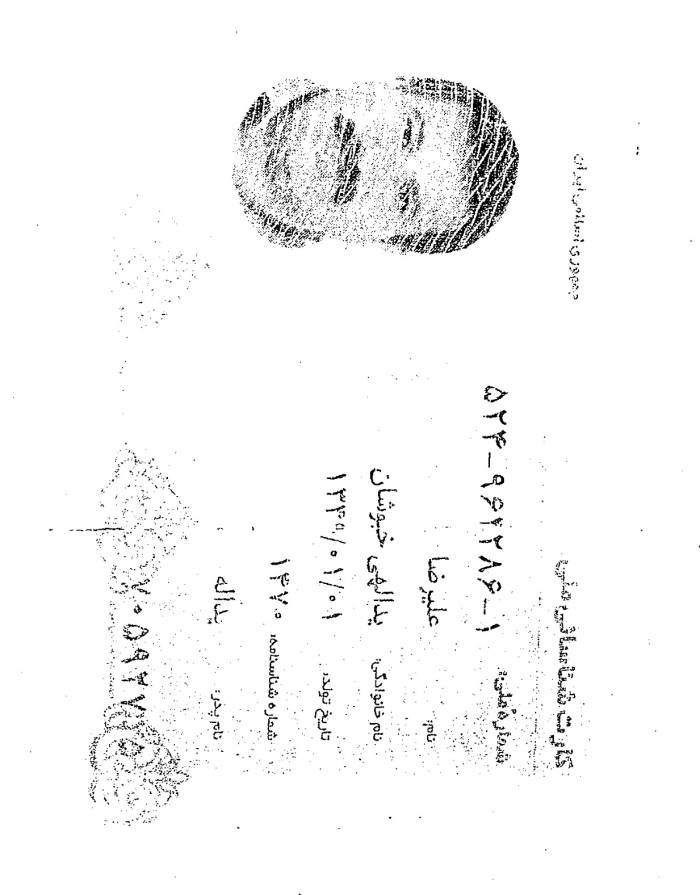 جمهوری اسلامی ایران
کارت شناسائی ملی
شماره ملی:
نام: علیرضا
نام خانوادگی: یدالهی خبوشان
تاریخ تولد: /۰۱/۰۱
شماره شناسنامه: ۱۴۷۰
نام پدر: یداله